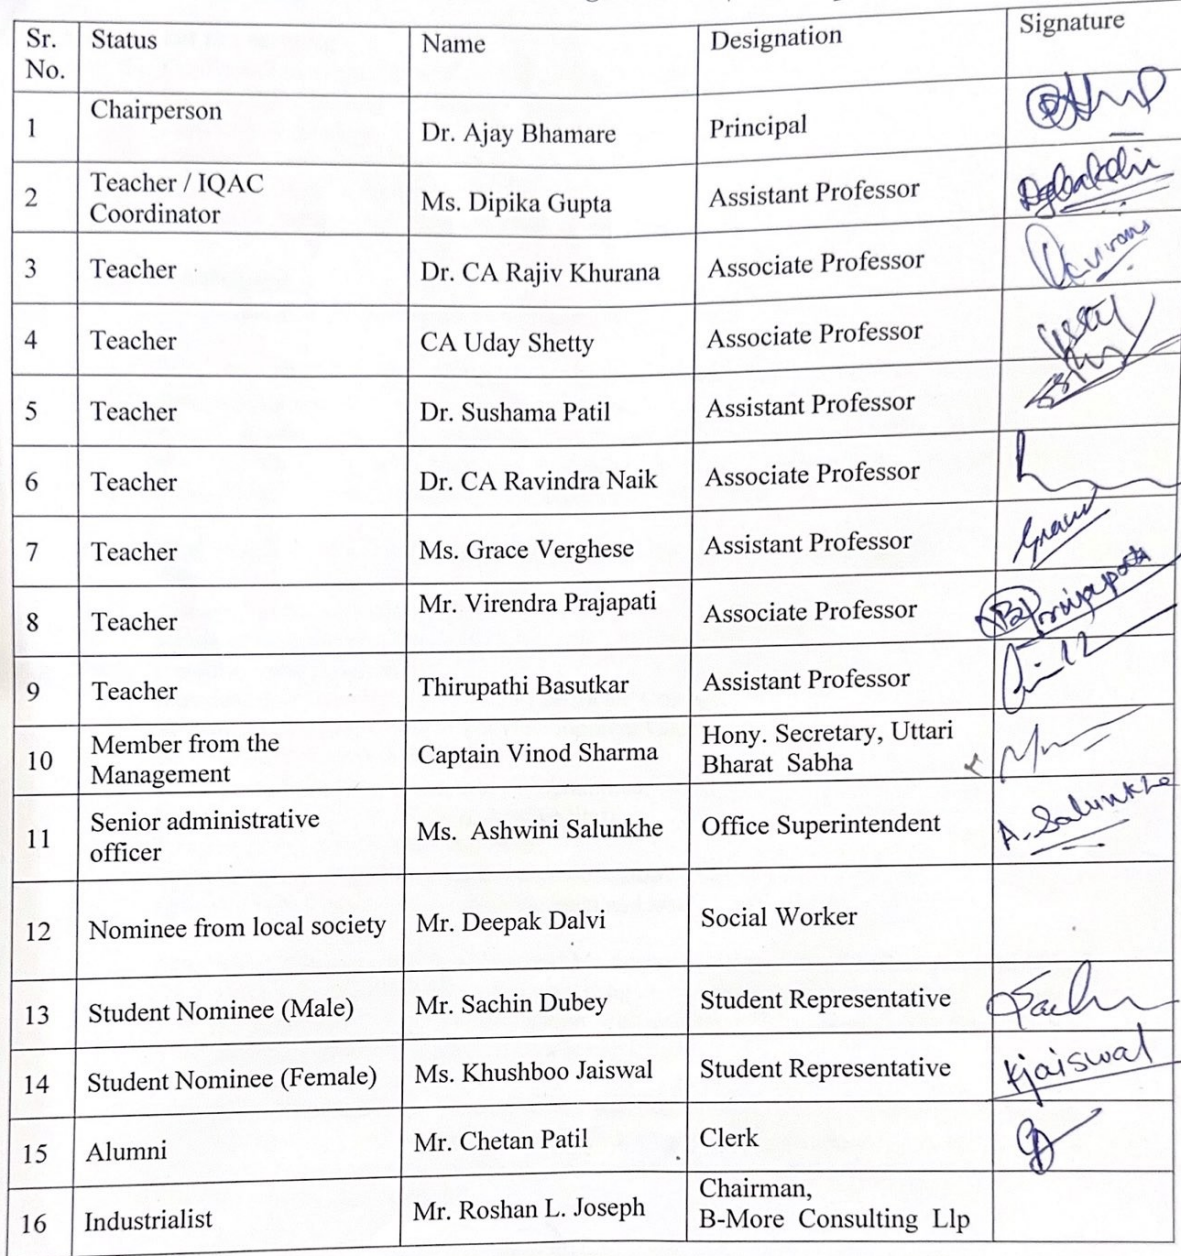 Sr. No. Status Name Designation Signature
1 Chairperson Dr. Ajay Bhamare Principal
2 Teacher / IQAC Coordinator Ms. Dipika Gupta Assistant Professor
3 Teacher Dr. CA Rajiv Khurana Associate Professor
4 Teacher CA Uday Shetty Associate Professor
5 Teacher Dr. Sushama Patil Assistant Professor
6 Teacher Dr. CA Ravindra Naik Associate Professor
7 Teacher Ms. Grace Verghese Assistant Professor
8 Teacher Mr. Virendra Prajapati Associate Professor
9 Teacher Thirupathi Basutkar Assistant Professor
10 Member from the Management Captain Vinod Sharma Hony. Secretary, Uttari Bharat Sabha
11 Senior administrative officer Ms. Ashwini Salunkhe Office Superintendent A. Salunkhe
12 Nominee from local society Mr. Deepak Dalvi Social Worker
13 Student Nominee (Male) Mr. Sachin Dubey Student Representative
14 Student Nominee (Female) Ms. Khushboo Jaiswal Student Representative Kjaiswal
15 Alumni Mr. Chetan Patil Clerk
16 Industrialist Mr. Roshan L. Joseph Chairman, B-More Consulting Llp